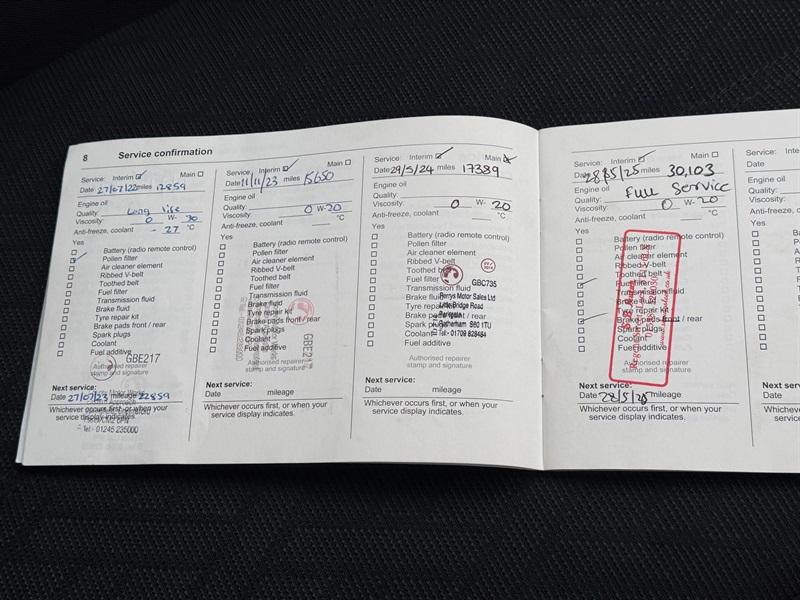 8 Service confirmation
Service: Interim ☑ Main ☐
Date 27/07/22 miles 12859
Engine oil
Quality: Long life
Viscosity: 0 W- 30
Anti-freeze, coolant - 27 °C
Yes
Battery (radio remote control)
Pollen filter
Air cleaner element
Ribbed V-belt
Toothed belt
Fuel filter
Transmission fluid
Brake fluid
Tyre repair kit
Brake pads front / rear
Spark plugs
Coolant
Fuel additive
GBE217
Authorised repairer
stamp and signature
Next service:
Date 27/07/23 mileage 22859
Whichever occurs first, or when your
service display indicates.
Tel:- 01245 235000
Service: Interim ☑ Main ☐
Date 11/11/23 miles 15650
Engine oil
Quality:
Viscosity: 0 W-20
Anti-freeze, coolant °C
Yes
Battery (radio remote control)
Pollen filter
Air cleaner element
Ribbed V-belt
Toothed belt
Fuel filter
Transmission fluid
Brake fluid
Tyre repair kit
Brake pads front / rear
Spark plugs
Coolant
Fuel additive
GBE217
Authorised repairer
stamp and signature
Next service:
Date mileage
Whichever occurs first, or when your
service display indicates.
Service: Interim ☑ Main ☑
Date 29/5/24 miles 17389
Engine oil
Quality:
Viscosity: 0 W- 20
Anti-freeze, coolant °C
Yes
Battery (radio remote control)
Pollen filter
Air cleaner element
Ribbed V-belt
Toothed belt
Fuel filter
GBC735
Transmission fluid
Brake fluid
Perrys Motor Sales Ltd
Tyre repair kit
Brake pads front / rear
Spark plugs
Rotherham S60 1TU
Coolant
Tel:- 01709 828484
Fuel additive
Authorised repairer
stamp and signature
Next service:
Date mileage
Whichever occurs first, or when your
service display indicates.
Service: Interim ☑ Main ☐
Date 28/5/25 miles 30,103
Engine oil
Full Service
Quality:
Viscosity: 0 W- 20
Anti-freeze, coolant °C
Yes
Battery (radio remote control)
Pollen filter
Air cleaner element
Ribbed V-belt
Toothed belt
Fuel filter
Transmission fluid
Brake fluid
Tyre repair kit
Brake pads front / rear
Spark plugs
Coolant
Fuel additive
Authorised repairer
stamp and signature
Next service:
Date 28/5/26 mileage
Whichever occurs first, or when your
service display indicates.
Service: Inte
Date
Engine oil
Quality:
Viscosity:
Anti-freeze, c
Yes
Next service
Date
Whichever
service